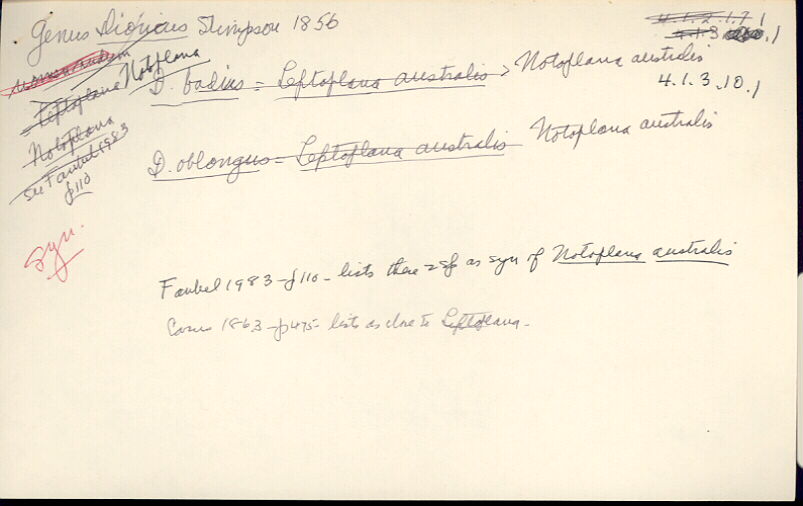 Genus Dioncus Stimpson 1856
4.1.2.1.7.1
4.1.3. .1
4.1.3.10.1
nomen nudum
Leptoplana Notoplana
Notoplana
see Faubel 1983
p110
D. badius = Leptoplana australis > Notoplana australis
D. oblongus = Leptoplana australis Notoplana australis
Syn.
Faubel 1983 - p110 - lists there 2 sp as syn of Notoplana australis
1863 - p475 - lists as close to Leptoplana.